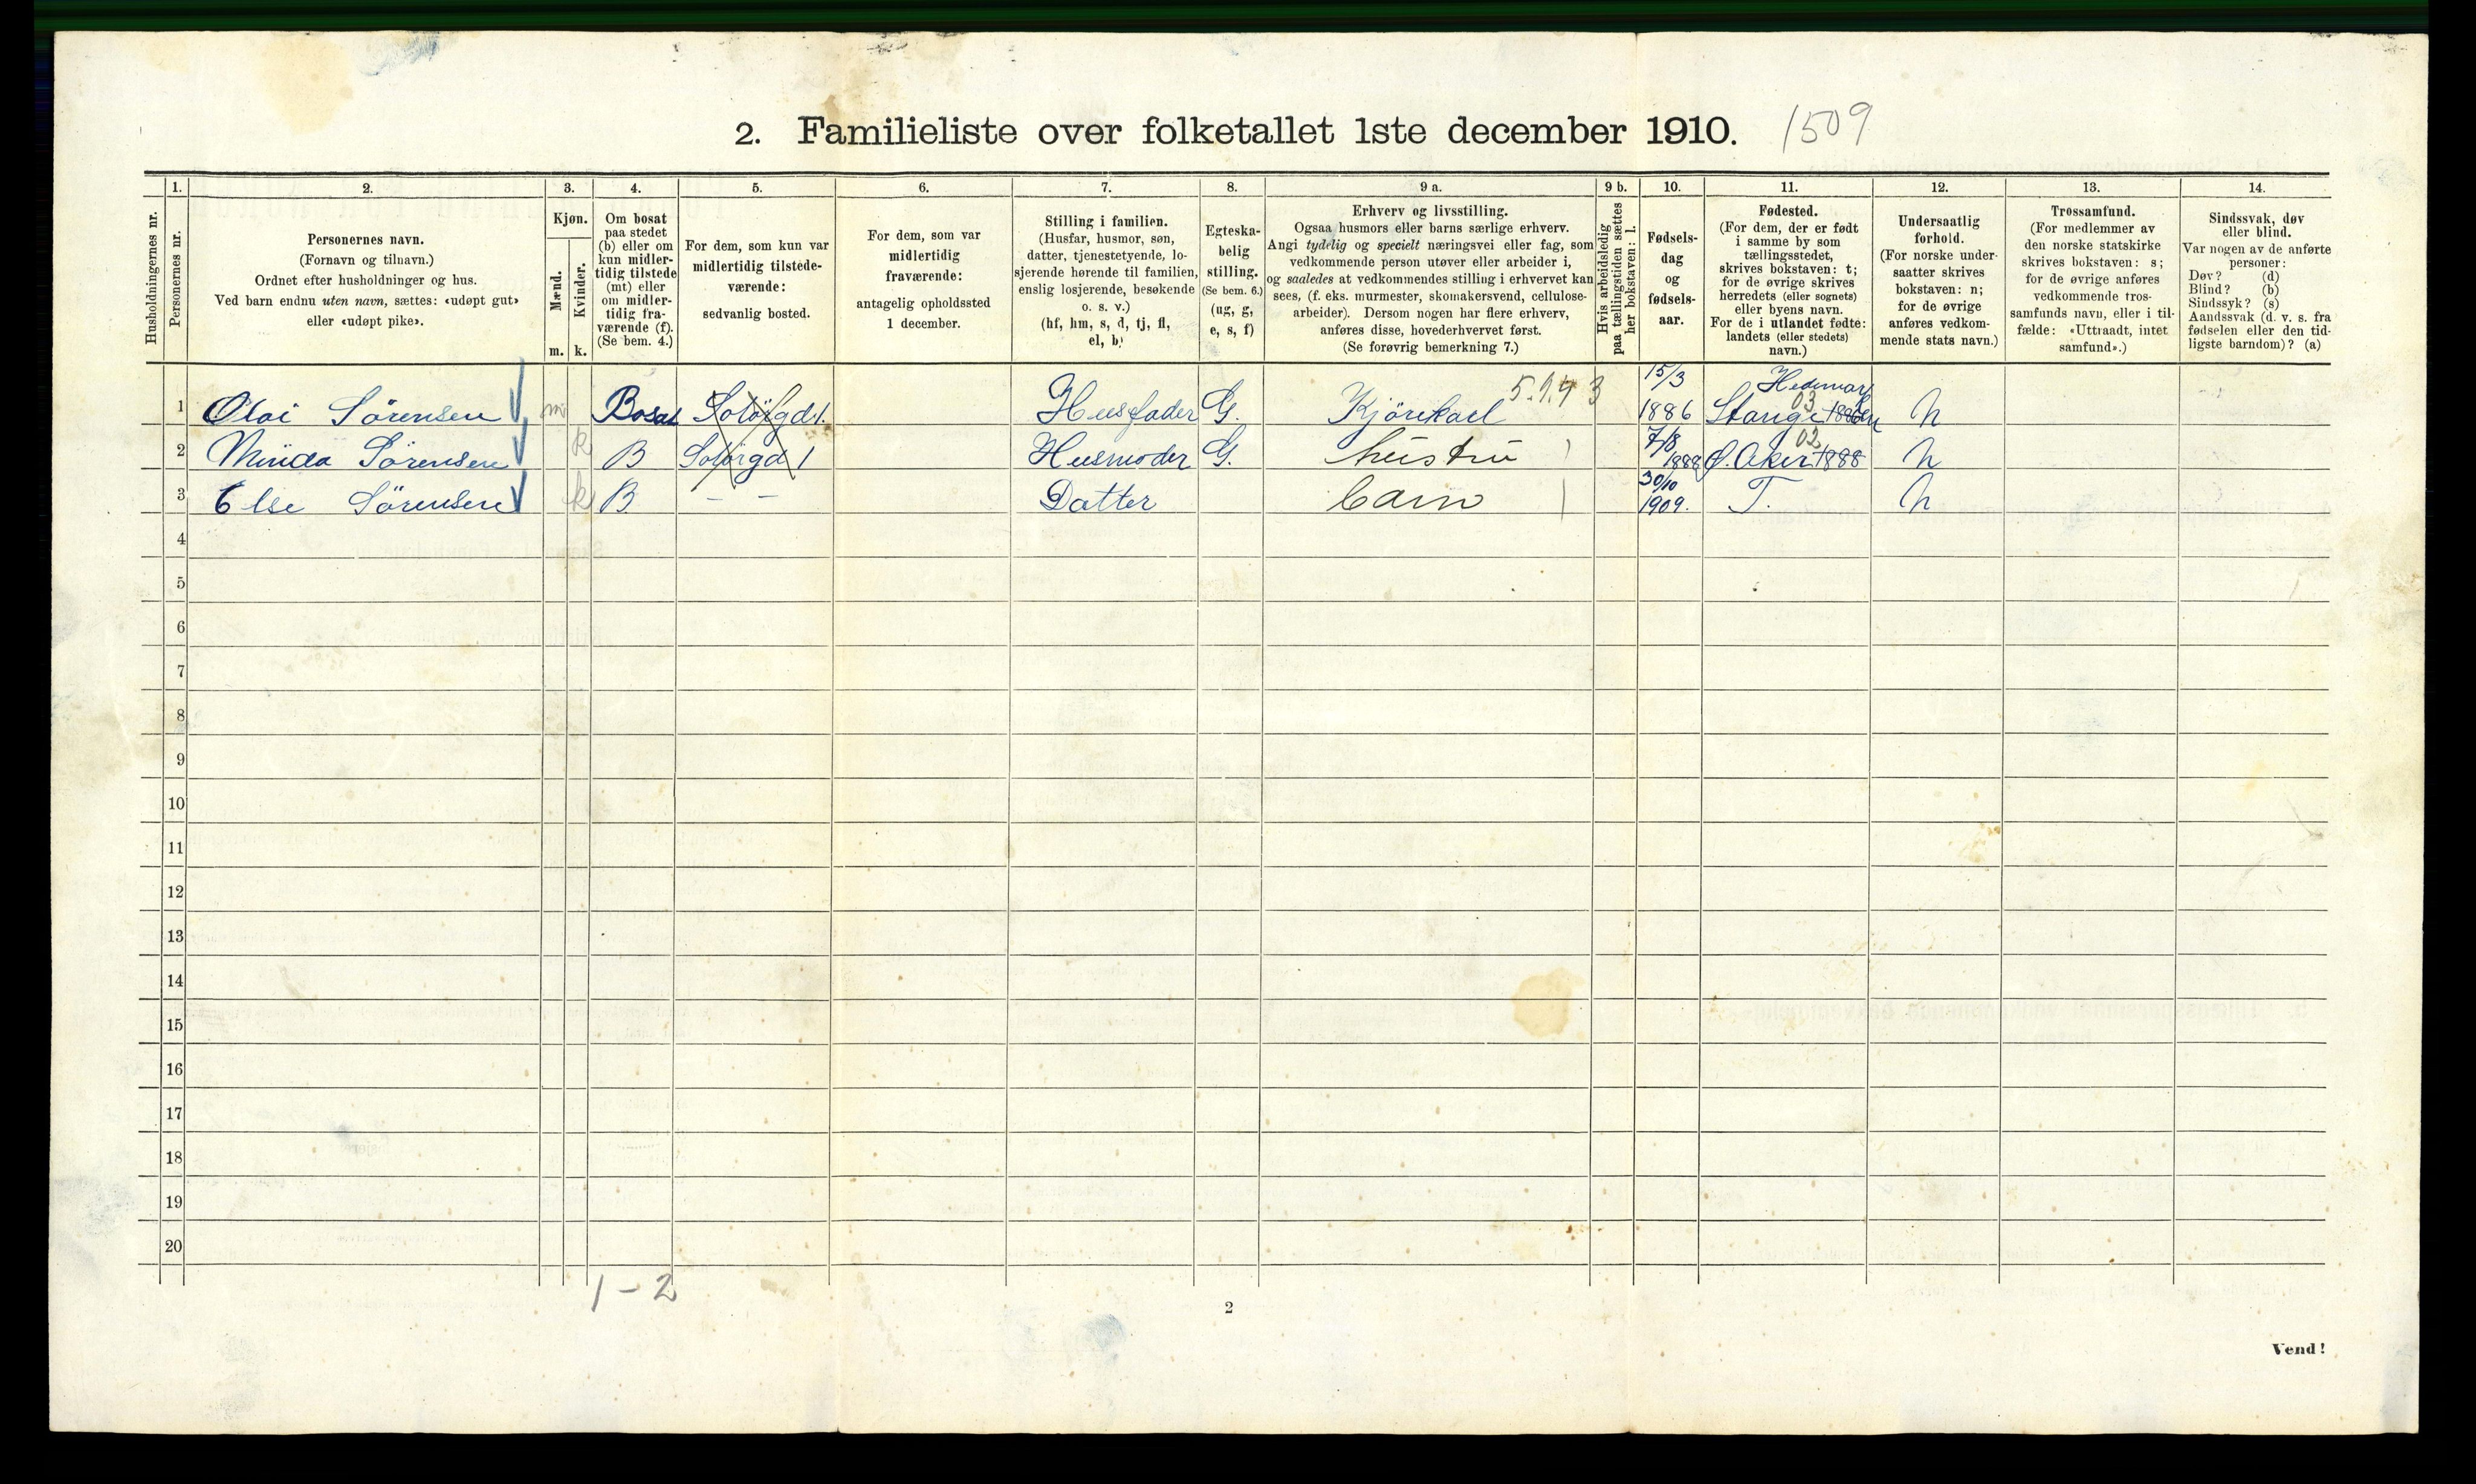 2. Familieliste over folketallet 1ste december 1910. 1509
1. 2. 3. 4. 5. 6. 7. 8. 9 a. 9 b. 10. 11. 12. 13. 14.
Husholdningernes nr.
Personernes nr.
Personernes navn.
(Fornavn og tilnavn.)
Ordnet efter husholdninger og hus.
Ved barn endnu uten navn, sættes: «udøpt gut»
eller «udøpt pike».
Kjøn.
Mænd.
Kvinder.
m. k.
Om bosat
paa stedet
(b) eller om
kun midler-
tidig tilstede
(mt) eller
om midler-
tidig fra-
værende (f).
(Se bem. 4.)
For dem, som kun var
midlertidig tilstede-
værende:
sedvanlig bosted.
For dem, som var
midlertidig
fraværende:
antagelig opholdssted
1 december.
Stilling i familien.
(Husfar, husmor, søn,
datter, tjenestetyende, lo-
sjerende hørende til familien,
enslig losjerende, besøkende
o. s. v.)
(hf, hm, s, d, tj, fl,
el, b)
Egteska-
belig
stilling.
(Se bem. 6.)
(ug, g,
e, s, f)
Erhverv og livsstilling.
Ogsaa husmors eller barns særlige erhverv.
Angi tydelig og specielt næringsvei eller fag, som
vedkommende person utøver eller arbeider i,
og saaledes at vedkommendes stilling i erhvervet kan
sees, (f. eks. murmester, skomakersvend, cellulose-
arbeider). Dersom nogen har flere erhverv,
anføres disse, hovederhvervet først.
(Se forøvrig bemerkning 7.)
Hvis arbeidsledig
paa tællingstiden sættes
her bokstaven: l.
Fødsels-
dag
og
fødsels-
aar.
Fødested.
(For dem, der er født
i samme by som
tællingsstedet,
skrives bokstaven: t;
for de øvrige skrives
herredets (eller sognets)
eller byens navn.
For de i utlandet fødte:
landets (eller stedets)
navn.)
Undersaatlig
forhold.
(For norske under-
saatter skrives
bokstaven: n;
for de øvrige
anføres vedkom-
mende stats navn.)
Trossamfund.
(For medlemmer av
den norske statskirke
skrives bokstaven: s;
for de øvrige anføres
vedkommende tros-
samfunds navn, eller i til-
fælde: «Uttraadt, intet
samfund».)
Sindssvak, døv
eller blind.
Var nogen av de anførte
personer:
Døv? (d)
Blind? (b)
Sindssyk? (s)
Aandssvak (d. v. s. fra
fødselen eller den tid-
ligste barndom)? (a)
1 Olai Sörensen m Bosat Solörgd 1. Husfader G. Kjörekarl 5.1.43 15/3 1886 Hedemarken Stange 03 1886 N
2 Minda Sörensen k B Solörgd 1 Husmoder G. hustru 7/8 1888 Ø. Aker 02 1888 N
3 Else Sörensen k B. — — Datter barn 30/10 1909. T. N
4
5
6
7
8
9
10
11
12
13
14
15
16
17
18
19
20
1 - 2
2
Vend!